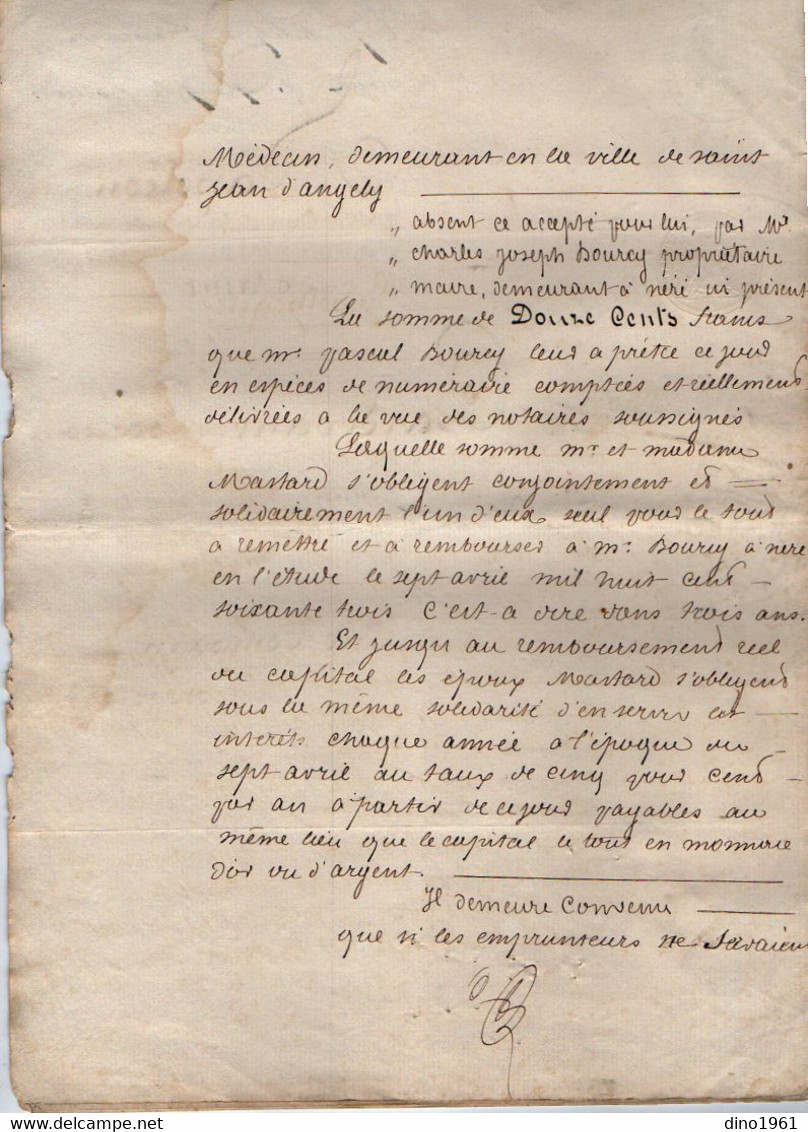 Médecin, demeurant en la ville de saint
Jean d'angely
„ absent ce accepté pour lui, par Mr.
„ charles Joseph Bourcy propriétaire
„ maire, demeurant à néré ici présent
La somme de Douze Cents francs
que mr. pascal Bourcy leur a prêtée ce jour
en espèces de numéraire comptées et réellement
délivrées à la vue des notaires soussignés
Laquelle somme mr. et madame
Massard s'obligent conjointement et
solidairement l'un d'eux seul pour le tout
à remettre et à rembourser à mr. Bourcy à néré
en l'étude le sept avril mil huit cent
soixante trois c'est-à dire dans trois ans.
Et jusqu'au remboursement réel
du capital les époux Massard s'obligent
sous la même solidarité d'en servir les
interêts chaque année à l'époque du
sept avril au taux de cinq pour cent
par an à partir de ce jour payables au
même lieu que le capital le tout en monnaie
d'or ou d'argent.
Il demeure convenu
que si les emprunteurs ne
dino1961